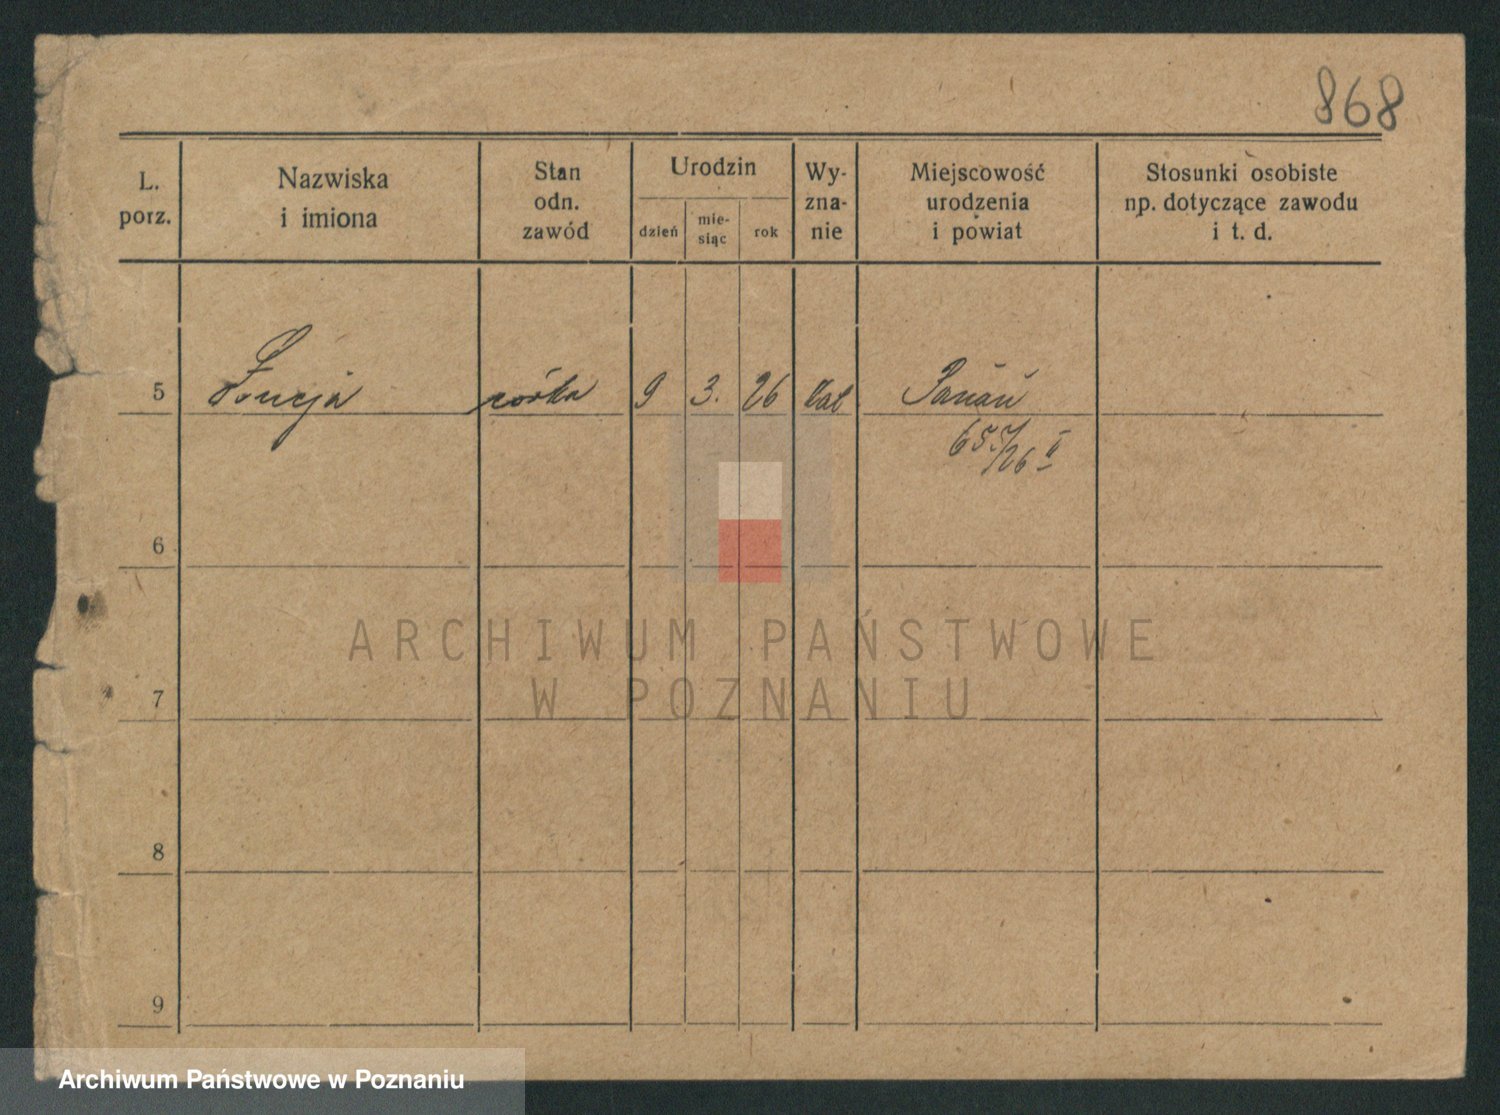 868
L. porz.
Nazwiska i imiona
Stan odn. zawód
Urodzin
dzień
mie-
siąc
rok
Wy-
zna-
nie
Miejscowość urodzenia i powiat
Stosunki osobiste np. dotyczące zawodu i t. d.
5 Łucja córka 9 3. 26 kat
655/26 II
6
7
8
9
ARCHIWUM PAŃSTWOWE
W POZNANIU
Archiwum Państwowe w Poznaniu